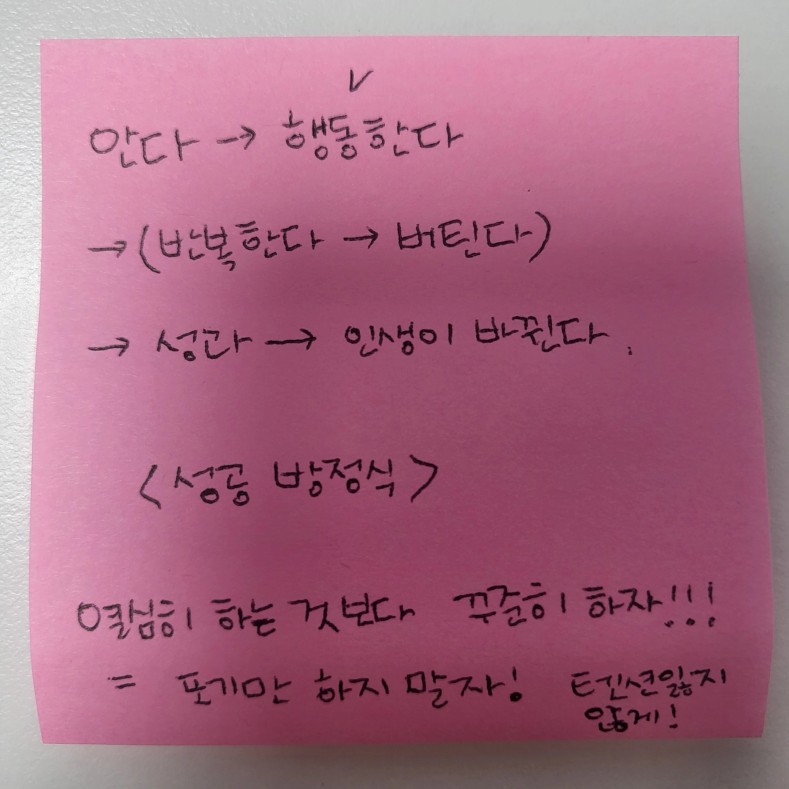 ✓
안다 → 행동한다
→ (반복한다 → 버틴다)
→ 성과 → 인생이 바뀐다.
<성공 방정식>
열심히 하는 것보다 꾸준히 하자!!!
= 포기만 하지 말자! 텐션잃지
않게!